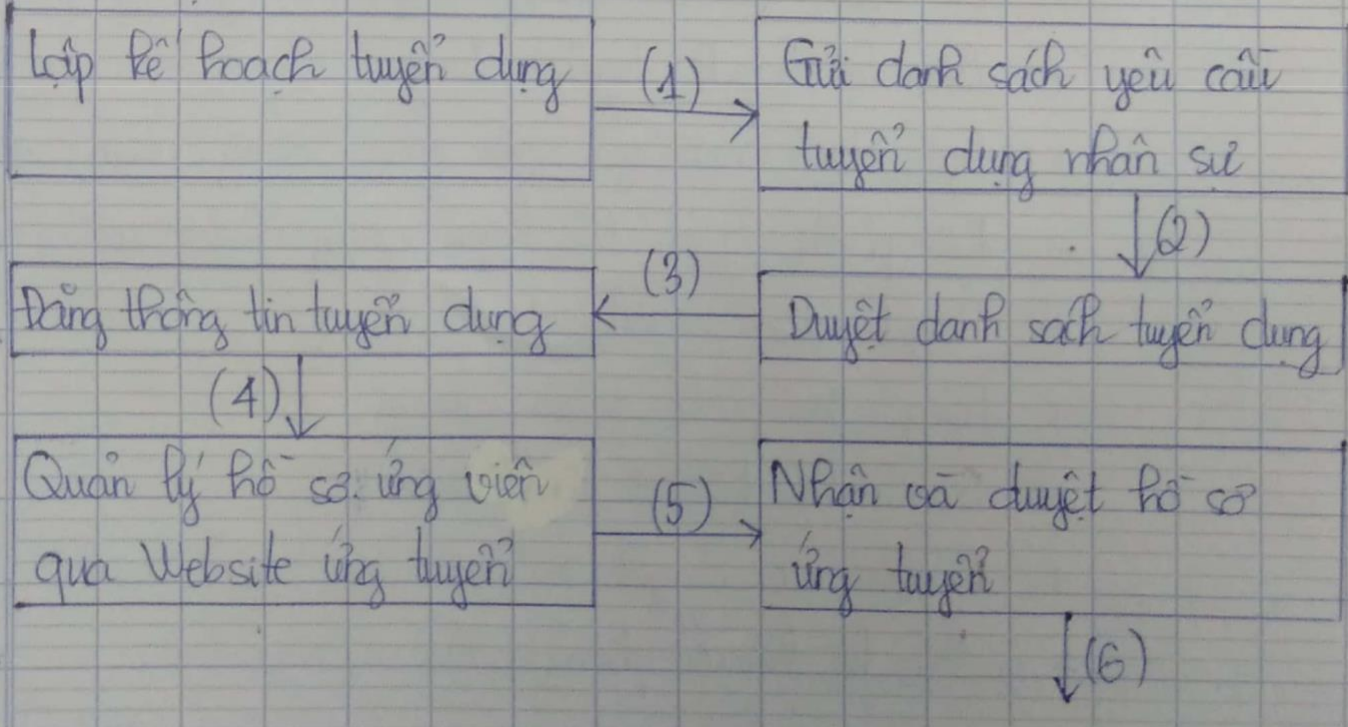 Lập kế hoạch tuyển dụng
(1)
Gửi danh sách yêu cầu
tuyển dụng nhân sự
(2)
Duyệt danh sách tuyển dụng
(3)
Đăng thông tin tuyển dụng
(4)
Quản lý hồ sơ ứng viên
qua Website ứng tuyển
(5)
Nhận và duyệt hồ sơ
ứng tuyển
(6)